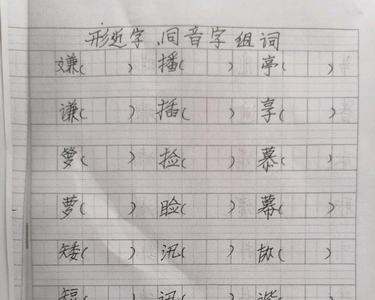 形近字、同音字组词
嫌( ) 播( ) 亭( )
谦( ) 插( ) 享( )
箩( ) 捡( ) 慕( )
萝( ) 脸( ) 幕( )
矮( ) 汛( ) 协( )
短( 讯( 谐(